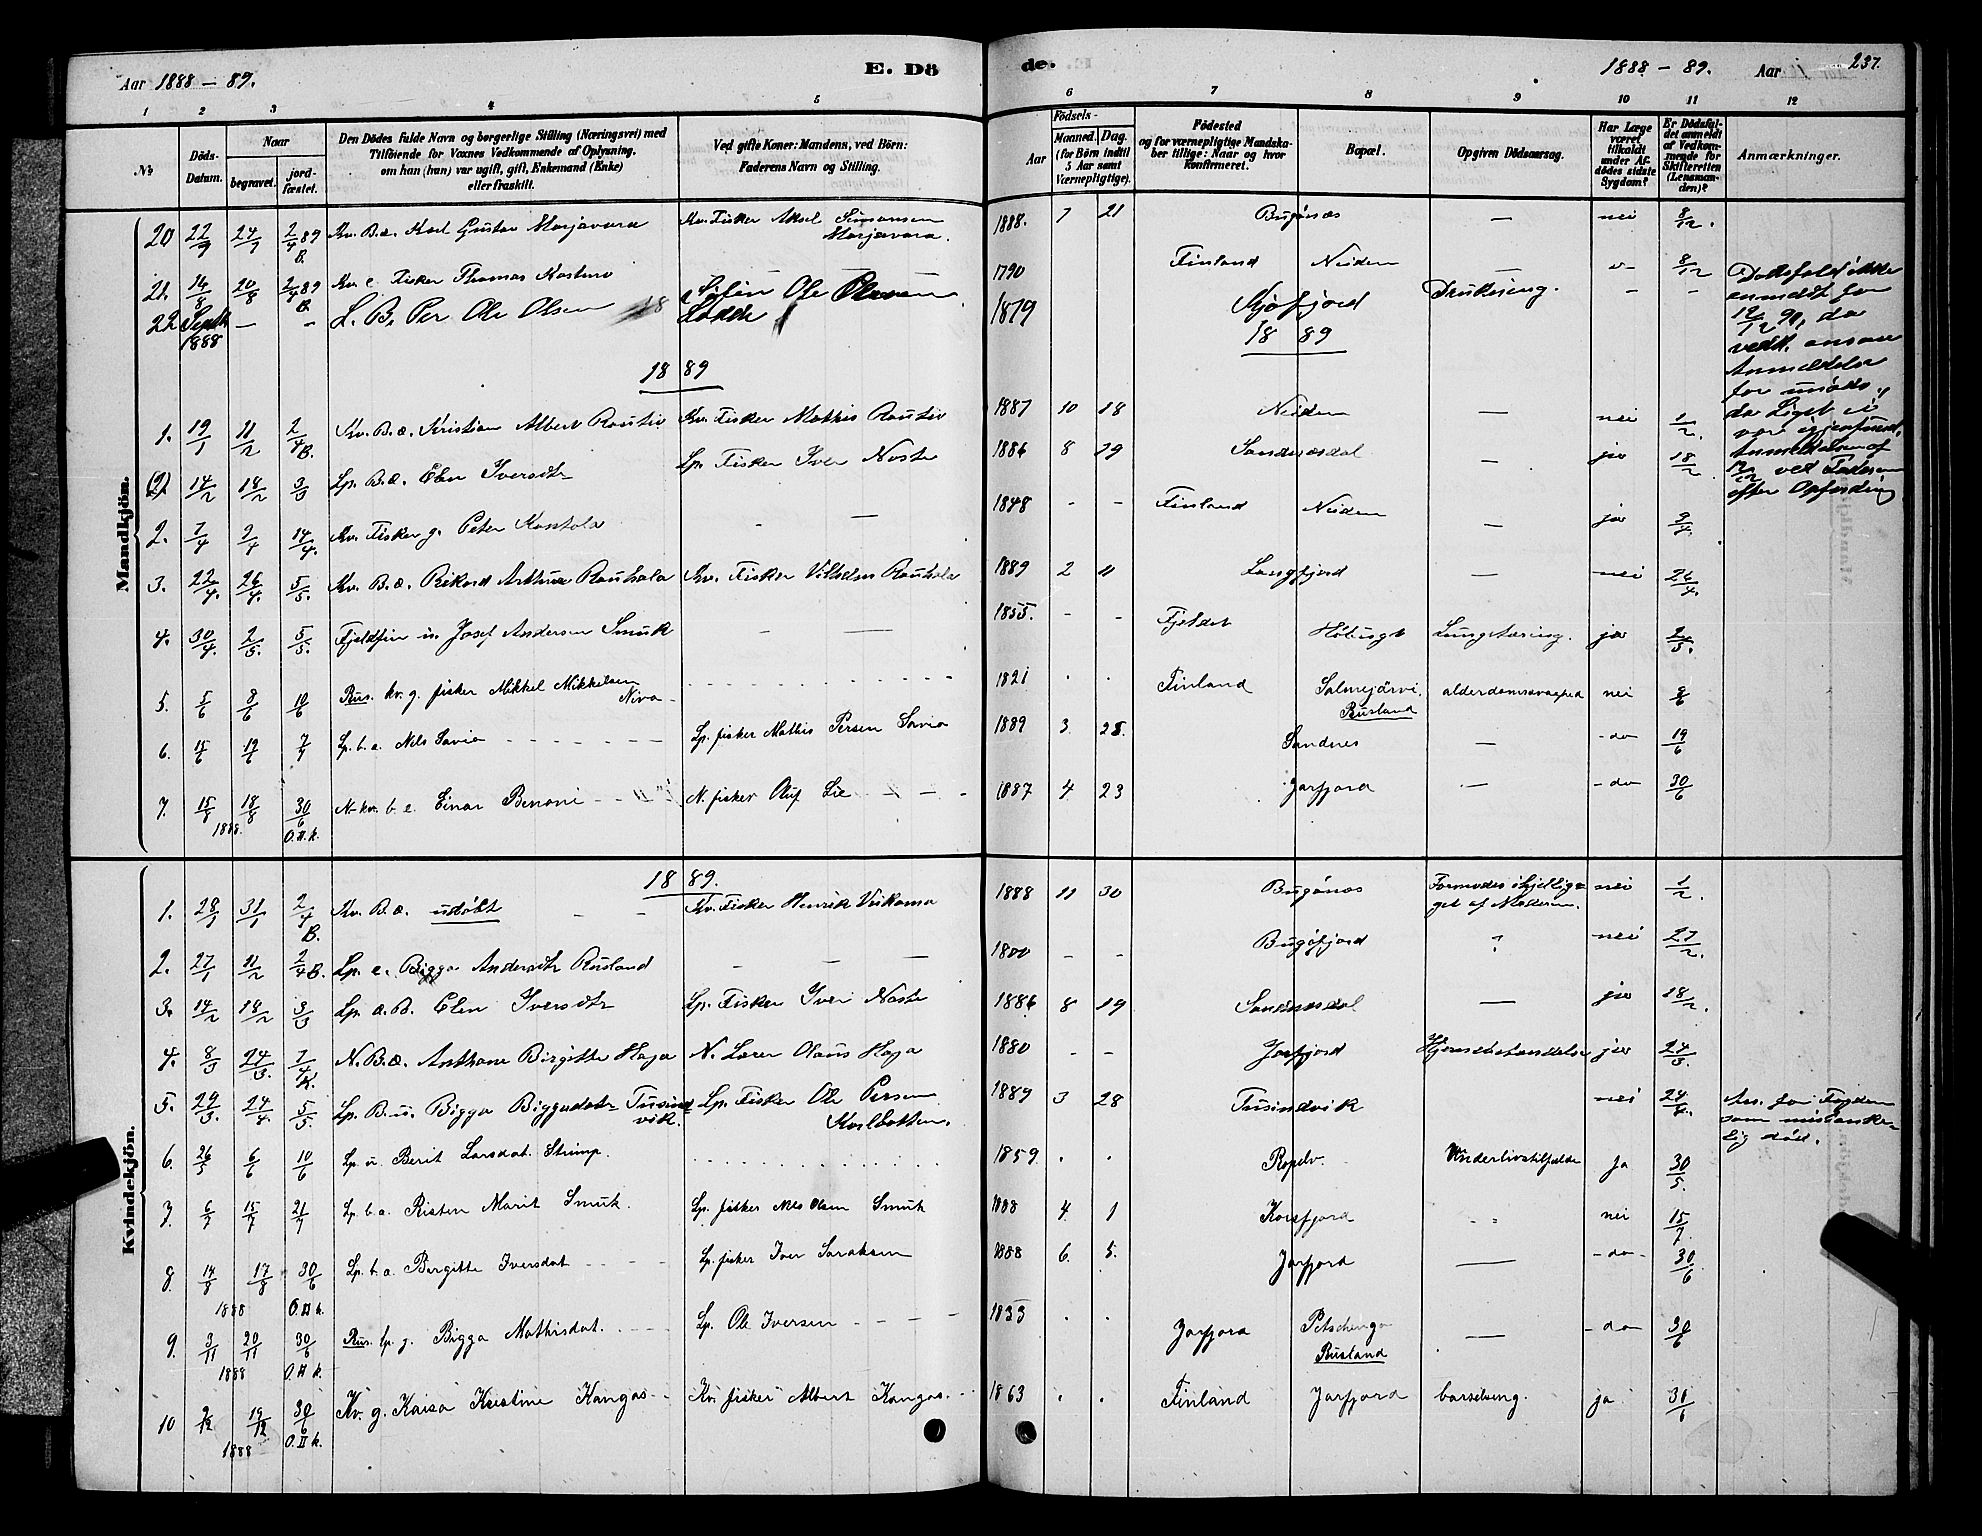 Aar 1888 - 89. E. Dö
de. 1888 - 89. Aar 237.
1 2 3 4 5
6 7 8 9 10 11 12
№
Döds-Datum.
Naar
begravet.
jord-fæstet.
Den Dödes fulde Navn og borgerlige Stilling (Næringsvei) med
Tilföiende for Voxnes Vedkommende af Oplysning,
om han (hun) var ugift, gift, Enkemand (Enke)
eller fraskilt.
Ved gifte Koner: Mandens, ved Börn:
Faderens Navn og Stilling.
Födsels-
Aar
Maaned. Dag.
(for Börn indtil
5 Aar samt
Værnepligtige).
Födested
og for værnepligtige Mandska-
ber tillige: Naar og hvor
konfirmeret.
Bopæl.
Opgiven Dödsaarsag.
Har Læge
været
tilkaldt
under Af-
dödes sidste
Sygdom?
Er Dödsfal-
det anmeldt
af Vedkom-
mende for
Skifteretten
(Lensman-
den)?
Anmærkninger.
Mandkjön.
20 22/7 24/7 2/4 89 B. Kv. B. æ. Karl Gustav Marjavara Kv. Fisker Aksel Simonsen Marjavara. 1888. 7 21 Bugönæs — nei 8/12.
21. 14/8 20/8 2/4 89 B. Kv. e. Fisker Thomas — 1790 Finland Neiden — 8/12
22 Septb 1888 — - L. B. Per Ole Olsen Ole Olsen 1879 Kjøfjord Drukning. - -
Dødsfald ikke
anmeldt før
12/12 90, da
vedk. ansaa
Anmeldelse
for unøds.,
da Liget ei
var igjenfund.
Anmeldelse af
12/12 ved Faderen
efter Opfordring
18 89
18 89
1. 19/1 11/2 2/4 B. Kv. B. æ. Kristian Albert Rautio Kv. Fisker Mathis Rautio 1887 10 18 Neiden — nei 1/2.
(2) 14/2 18/2 3/3 Lp. B. æ. Elen Iversdtr Lp. Fisker Iver Noste 1886 8 19 Sandnesdal — ja 18/2.
2. 2/4 14/4. Kv. Fisker g. Peter - — 1848 - - Finland Neiden — ja 9/4.
3. 22/4. 26/4. 5/5. Kv. B. æ. Rikard Arthur Rauhala Kv. Fisker Vilhelm Rauhala 1889 2 11 Langfjord — nei 26/4.
4. 30/4. 2/5. 5/5. Fjeldfin u. Josef Andersen Smuk - — 1855. - - Fjeldet Høbugt Lungetæring. ja
5. 5/6 8/6 10/6 Rus. kv. g. fisker Mikkel Mikkelsen Niva 1821 . . Finland Salmejärvi. Rusland alderdomssvaghed nei 8/6
6. 15/6 19/6 7/7 Lp. b. a. Nils Savio Lp. fisker Mathis Persen Savio 1889 3. 28. Sandnes — - do 19/6
7. 15/8 18/8 1888. 30/6 O. II. k. N-kv. b. e. Einar Benoni N. fisker Oluf Lie 1887 4. 23 Jarfjord — - do 30/6
Kvindekjön.
18 89.
1. 28/1 31/1 2/4 B. Kv. B. æ. udöbt Kv. Fisker Henrik 1888 11 30 Bugönæs Formodes ihjelligget af Moderen. nei 1/2.
2. 27/1 11/2 2/4 B. Lp. e. Bigga Andersdtr Rusland - — — 1800 - - Bugöfjord ? nei 27/2.
3. 14/2 18/2 3/3 Lp. æ. B. Elen Iversdtr Lp. Fisker Iver Noste 1886 8 19 Sandnesdal — ja 18/2.
4. 8/3 24/3. 7/4 K. N. B. æ. Anthone Birgitte Haga N. Lærer Olaus Haga 1880 - - Jarfjord Hjernebetændelse ja 24/3.
5. 29/3. 24/4. 5/5. Lp. B. u. Bigga Biggadatr Tusindvik. Lp. Fisker Ole Persen Karlbotten. 1889 3 28 Tusindvik nei 24/4. An. for Fogden
som mistænke-
lig død.
6. 26/5 6/6 10/6 Lp. u. Berit Larsdat. Strimp. 1859 . . Ropelv. Underlivstilfælde ja 30/5.
7. 6/7 15/7 21/7 Lp. b. a. Risten Marit Smuk. Lp. fisker Nils Olsen Smuk 1888 4. 1 Korsfjord nei 15/7.
8. 14/8 17/8 1888 30/6 O. II k. Lp. b. a. Bergitte Iversdat Lp. fisker Iver Saraksen 1888 6. 5. Jarfjord — - do - 30/6
9. 3/11 20/11 1888 30/6 O. II k. Rus. lp. g. Bigga Mathisdat. Lp. Ole Iversen 1833 . . Jarfjord Petschenga Rusland — - do 30/6
10 2/12 19/12 1888 30/6 O. II k. Kv. g. Kaisa Kristine Kangas Kv. fisker Albert Kangas. 1863 . . Finland Jarfjord barselseng. ja 30/6